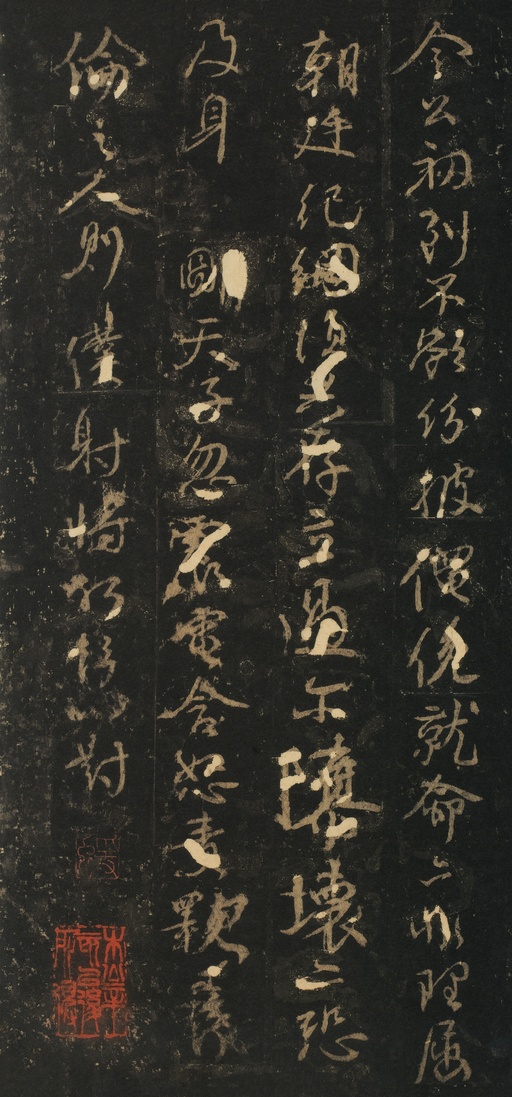 令公初到不欲紛披僶俛就命亦非理屈
朝廷紀綱須共存立過爾隳壞亦恐
及身 明天子忽震電含怒責斁彝
倫之人則僕射將何辭以對